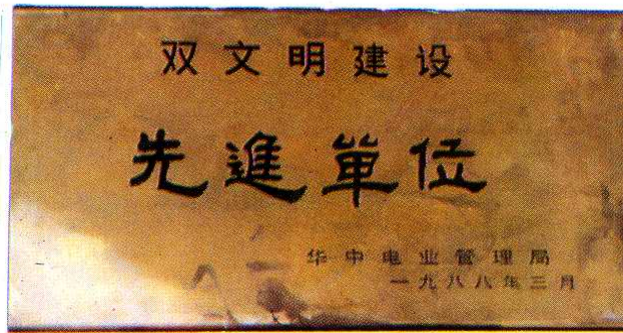 双文明建设
先進單位
华中电业管理局
一九八八年三月